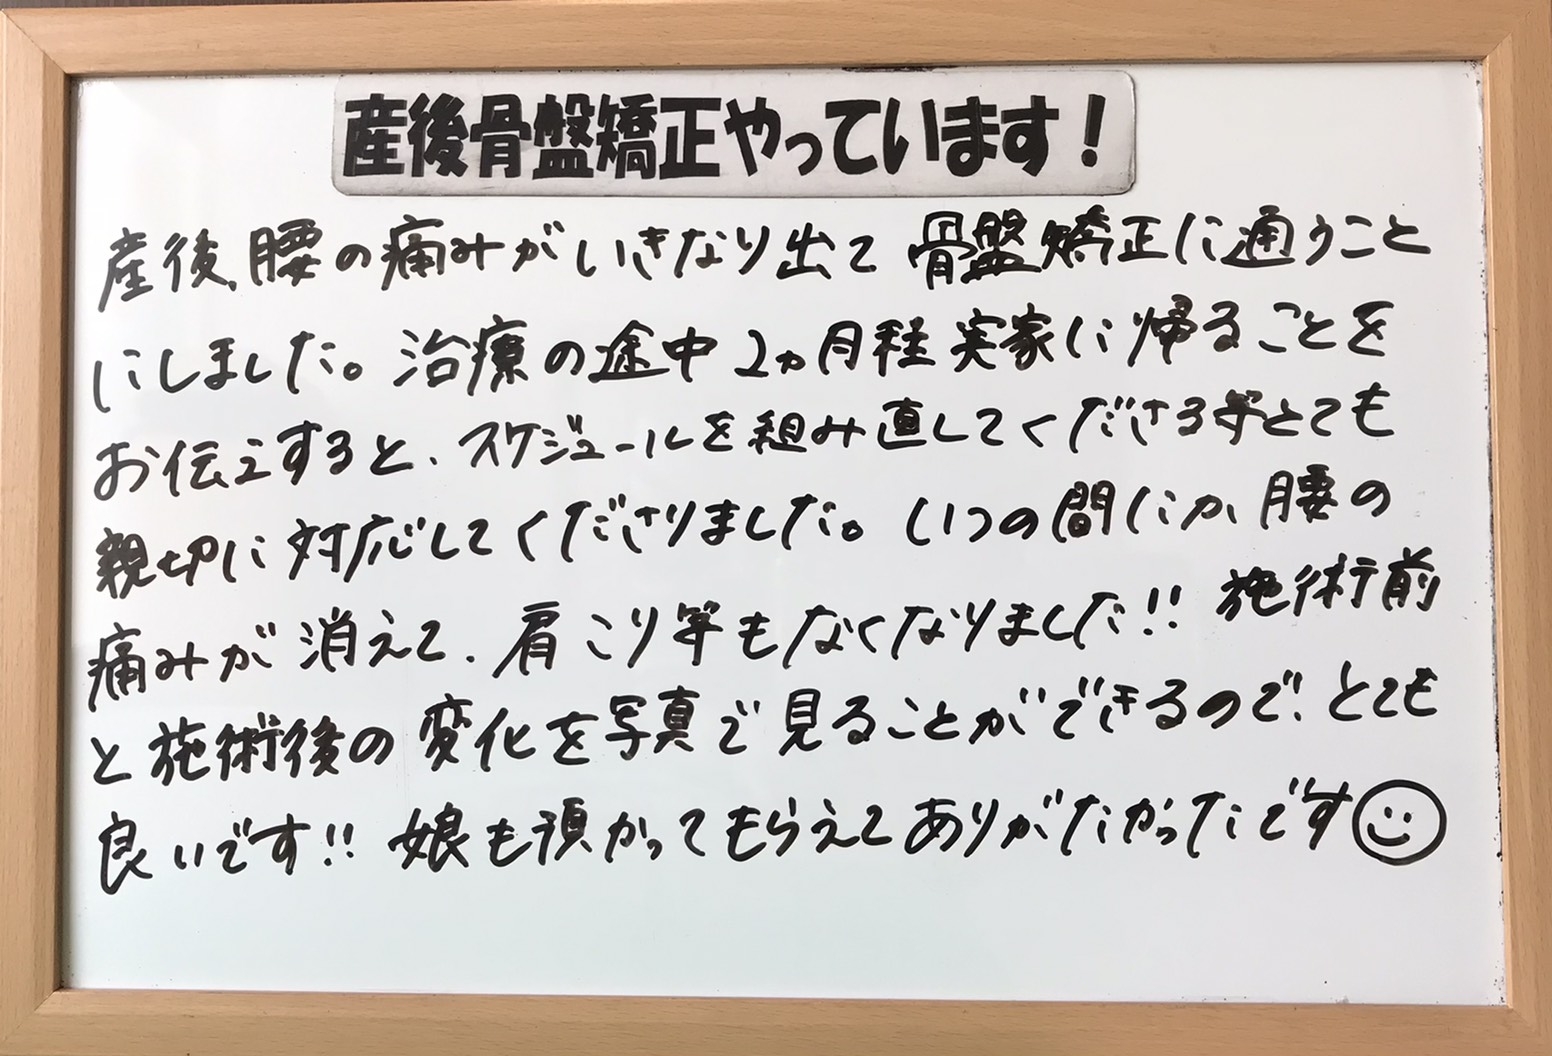 産後骨盤矯正やっています！
産後、腰の痛みがいきなり出て 骨盤矯正に通うこと
にしました。治療の途中 2ヵ月程 実家に帰ることを
お伝えすると、スケジュールを組み直してくださる等とても
親切に対応してくださりました。いつの間にか、腰の
痛みが消えて、肩こり等もなくなりました!! 施術前
と施術後の変化を写真で見ることができるので、とても
良いです!! 娘も預かってもらえてありがたかったです☺